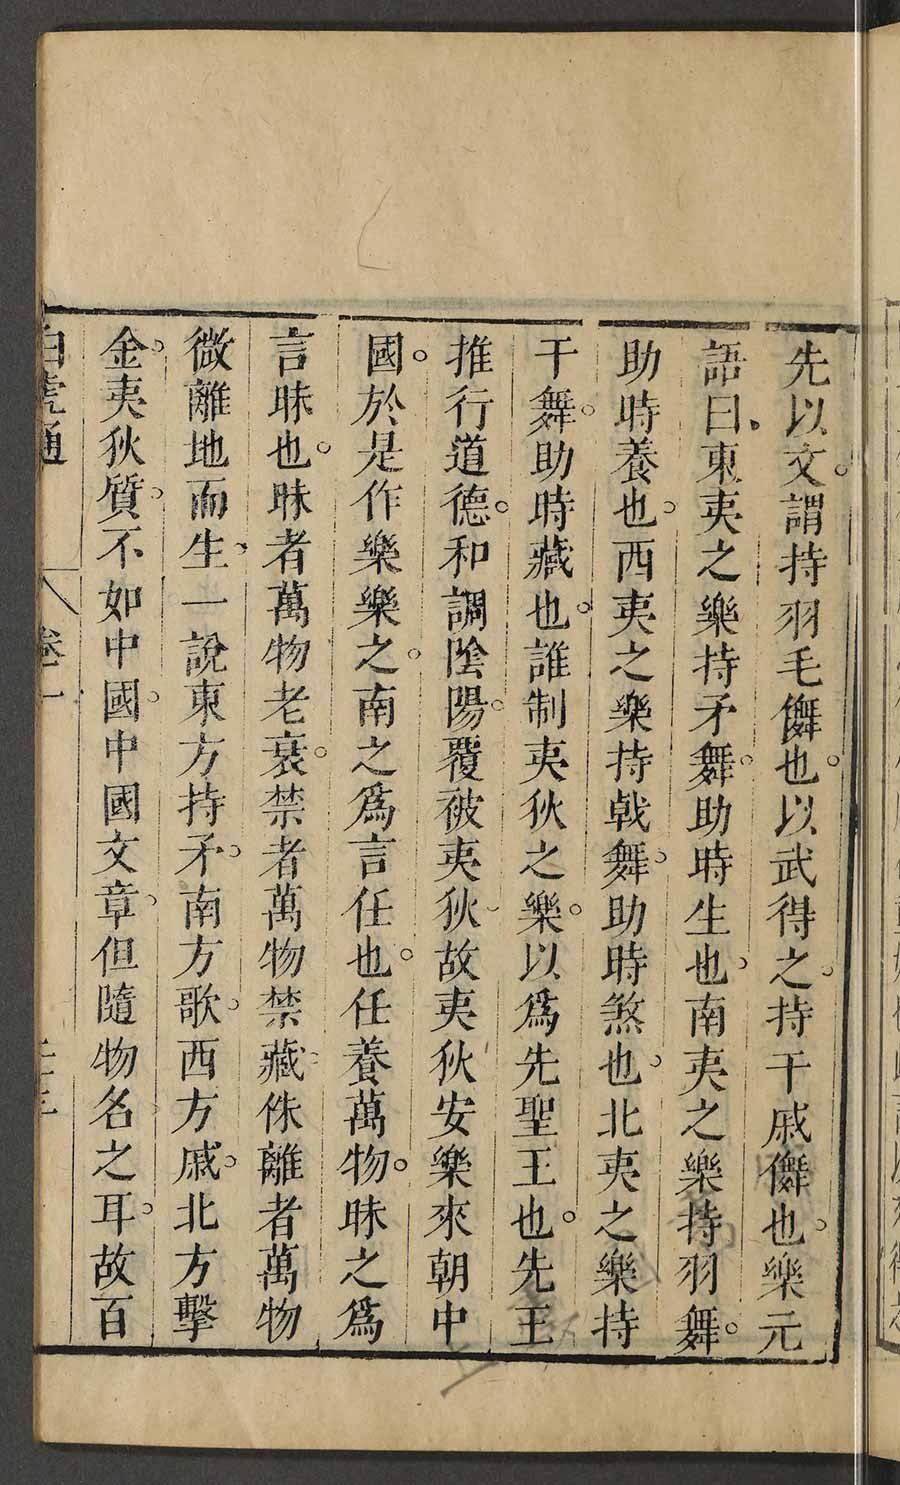 先以文謂持羽毛儛也以武得之持干戚儛也樂元
語曰東夷之樂持矛舞助時生也南夷之樂持羽舞
助時養也西夷之樂持戟舞助時煞也北夷之樂持
干舞助時藏也誰制夷狄之樂以爲先聖王也先王
推行道德和調陰陽覆被夷狄故夷狄安樂來朝中
國於是作樂樂之南之爲言任也任養萬物昧之爲
言昧也昧者萬物老衰禁者萬物禁藏侏離者萬物
微離地而生一說東方持矛南方歌西方戚北方擊
金夷狄質不如中國中國文章但隨物名之耳故百
白虎通 卷一